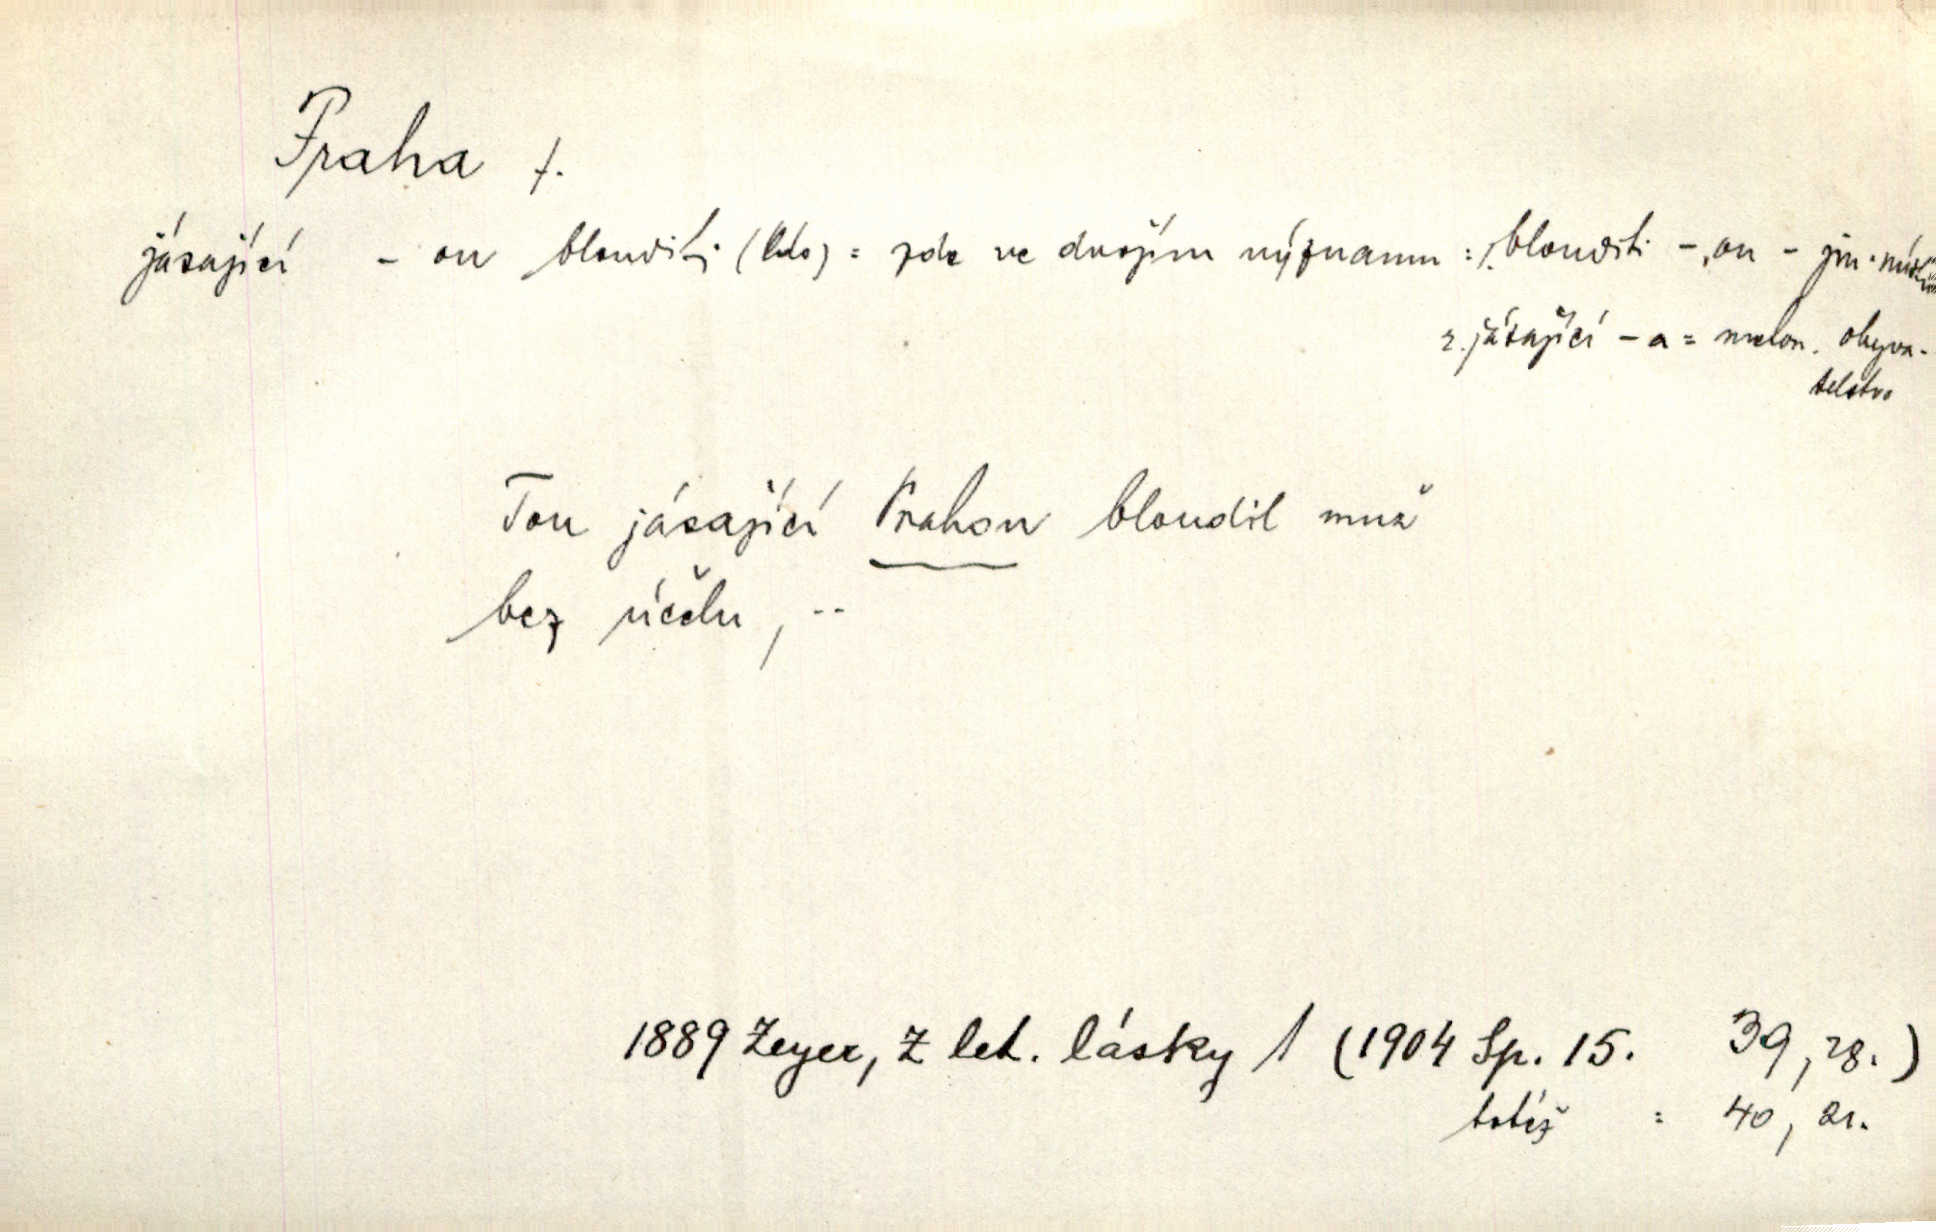 Praha f.
jásající – ou blouditi (kdo) = zde ve dvojím významu : 1. blouditi – ou – jm. místní
2. jásající – a = meton. obyva-
telstvo
Tou jásající Prahou bloudil muž
bez účelu, --
1889 Zeyer, Z let. lásky 1 (1904 Sp. 15. 39, 28.)
totéž = 40, 21.